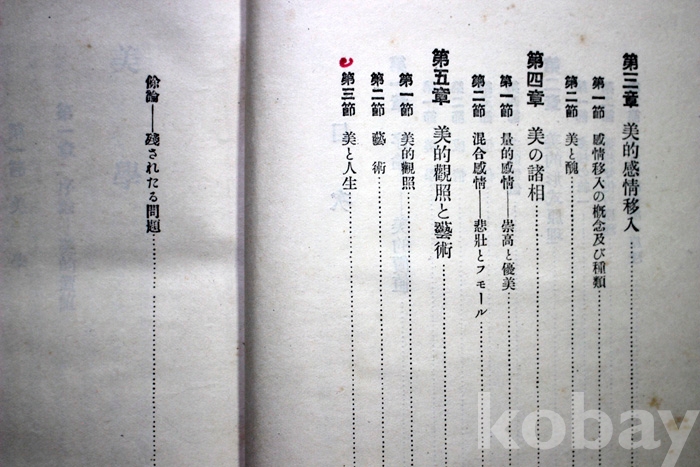 第三章 美的感情移入
第一節 感情移入の槪念及び種類
第二節 美と醜
第四章 美の諸相
第一節 量的感情――崇高と優美
第二節 混合感情――悲壯とフモール
第五章 美的觀照と藝術
第一節 美的觀照
第二節 藝術
第三節 美と人生
餘論――殘されたる問題
kobay